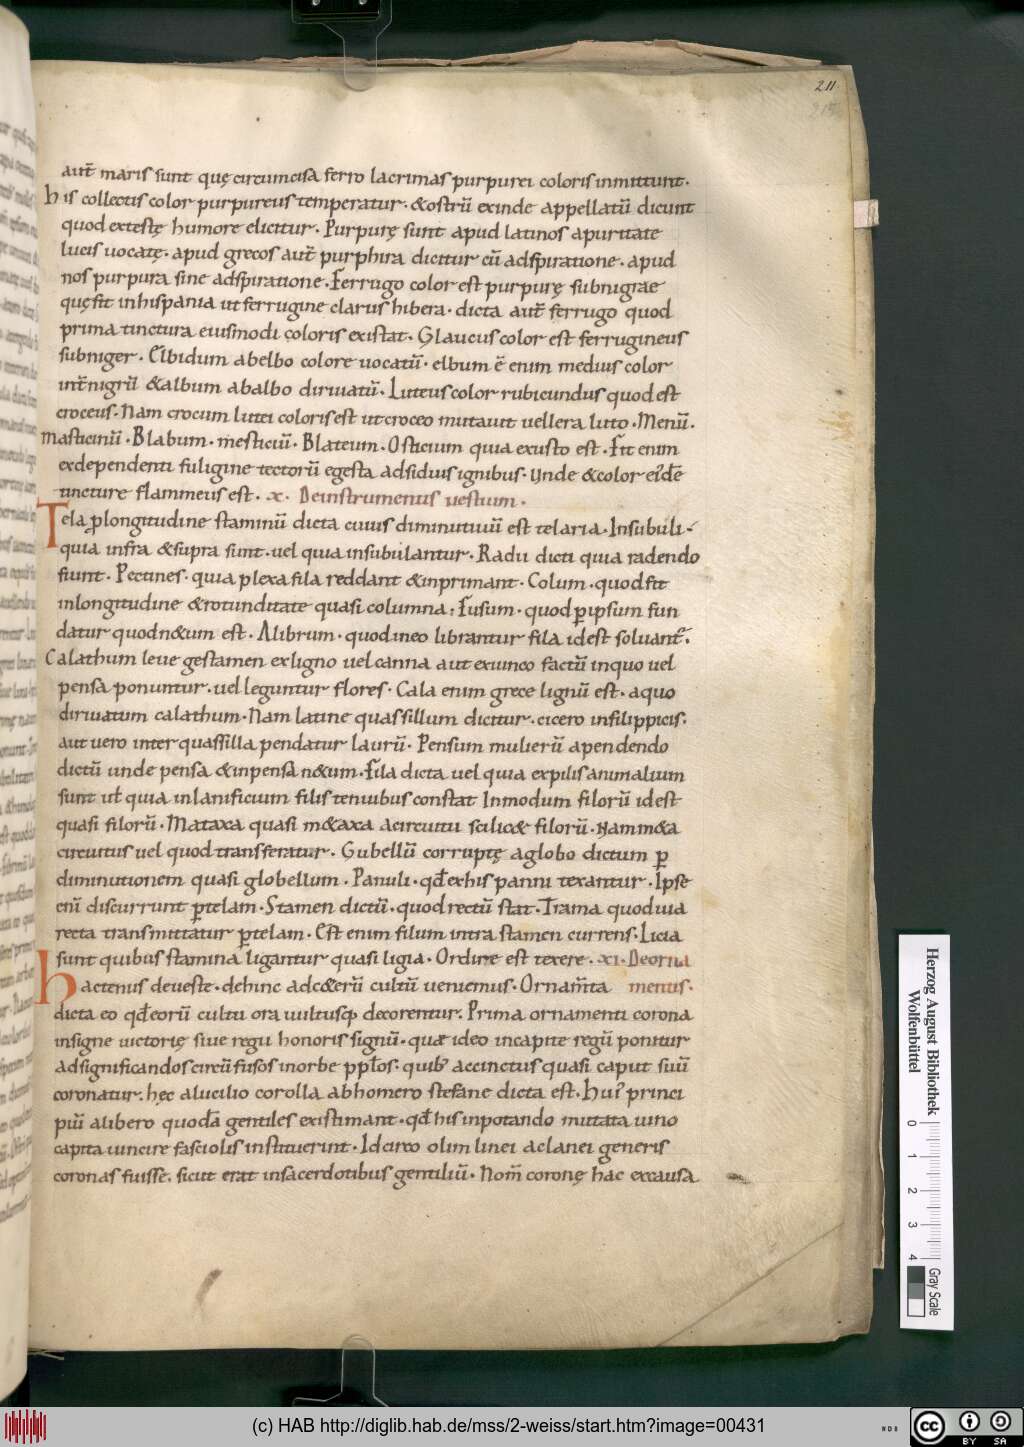 211
215
aut̄ maris sunt quę circumcisa ferro lacrimas purpurei coloris inmittunt.
his collectis color purpureus temperatur. & ostrū exinde appellatū dicunt
quod ex testę humore elicitur. Purpurę sunt apud latinos a puritate
lucis uocatę. apud grecos aut̄ purphira dicitur cū adspiratione. apud
nos purpura sine adspiratione. Ferrugo color est purpurę subnigrae
quę fit in hispania ut ferrugine clarus hibera. dicta aut̄ ferrugo quod
prima tinctura eiusmodi coloris existat. Glaucus color est ferrugineus
subniger. Elbidum ab elbo colore uocatū. elbum ē enim medius color
int̄ nigrū & album ab albo diriuatū. Luteus color rubicundus quod est
croceus. Nam crocum lutei coloris est ut croceo mutauit uellera luto. Menū.
masticinū. Blabum. mesticiū. Blateum. Osticium quia exusto est. Fit enim
ex dependenti fuligine tectorū egesta adsiduis ignibus. Unde & color eiđē
tincture flammeus est. x. De instrumentis uestium.
Tela p longitudine staminū dicta cuius diminutiuū est telaria. Insubuli
quia infra & supra sunt. uel quia insubulantur. Radii dicti quia radendo
fiunt. Pectines. quia plexa fila reddant & inprimant. Colum. quod fit
in longitudine & rotunditate quasi columna. Fusum. quod p ipsum fun
datur quod n&um est. Alibrum. quod in eo librantur fila id est soluant̄.
Calathum leue gestamen ex ligno uel canna aut ex iunco factū in quo uel
pensa ponuntur. uel leguntur flores. Cala enim grece lignū est. a quo
diriuatum calathum. Nam latine quassillum dicitur. cicero in filippicis.
aut uero inter quassilla pendatur laurū. Pensum mulierū a pendendo
dictū unde pensa & inpensa n&um. Fila dicta uel quia ex pilis animalium
sunt ut̄ quia in lanificium filis tenuibus constat In modum filorū id est
quasi filorū. Mataxa quasi m&axa a circuitu scilic& filorū. Nam m&a
circuitus uel quod transferatur. Gubellū corruptę a globo dictum p
diminutionem quasi globellum. Panuli. qđ ex his panni texantur. Ipse
enī discurrunt p telam. Stamen dictū. quod rectū stat. Trama quod uia
recta transmittatur p telam. Est enim filum intra stamen currens. Licia
sunt quibus stamina ligantur quasi ligia. Ordire est texere. xi. De orna
hactenus de ueste. dehinc ad c&erū cultū ueniemus. Ornam̄ta mentis.
dicta eo qđ eorū cultu ora uultusq; decorentur. Prima ornamenti corona
insigne uictorię siue regii honoris signū. quæ ideo in capite regū ponitur
ad significandos circū fusos in orbe pp̄los. quib; accinctus quasi caput suū
coronatur. hęc a lucilio corolla ab homero stefane dicta est. Hui' princi
piū a libero quodā gentiles existimant. qđ his in potando mutata uino
capita uincire fasciolis instituerint. Idcirco olim linei ac lanei generis
coronas fuisse. sicut erat in sacerdotibus gentiliū. Nom̄ coronę hac ex causa
Herzog August Bibliothek
Wolfenbüttel
0 1 2 3 4
Gray Scale
(c) HAB http://diglib.hab.de/mss/2-weiss/start.htm?image=00431
cc BY SA